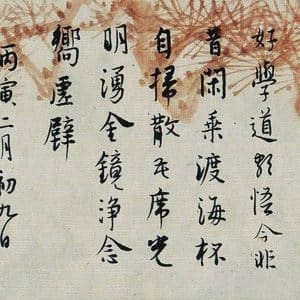 好學道輒悟今非
昔閑乗渡海杯
自掃散花席光
明湧金鏡淨念
嚮虛壁
丙寅二月初九日